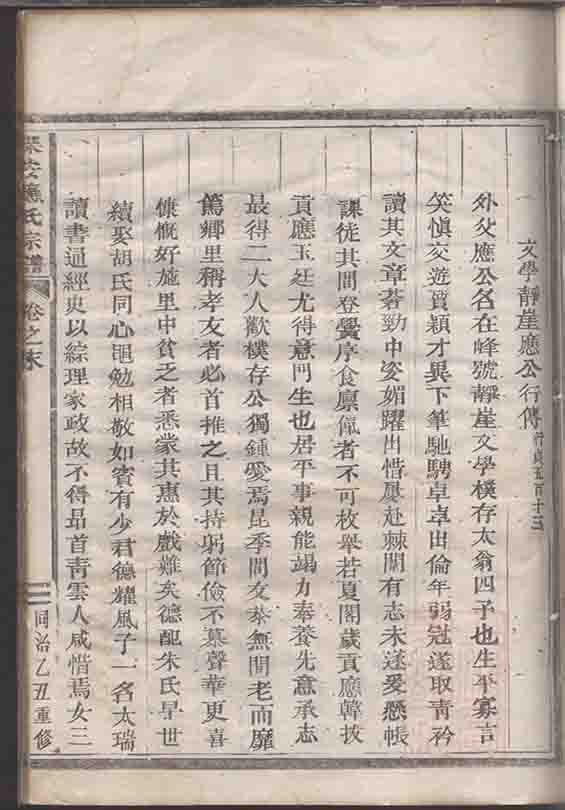 文學靜崖應公行傳 行貞五百十三
外父應公名在峰號靜崖文學樸存太翁四子也生平寡言
笑愼交遊質穎才異下筆馳騁卓卓出倫年弱冠遂取靑衿
讀其文章蒼勁中姿媚躍出惜屢赴棘闈有志未遂爰懸帳
課徒其間登黌序食廩餼者不可枚舉若夏閣歲貢應韓拔
貢應玉廷尤得意門生也居平事親能竭力奉養先意承志
最得二大人歡樸存公獨鍾愛焉昆季間友恭無間老而靡
篤鄉里稱孝友者必首推之且其持躬節儉不慕聲華更喜
慷慨好施里中貧乏者悉蒙其惠於戲難矣德配朱氏早世
續娶胡氏同心黽勉相敬如賓有少君德耀風子一名太瑞
讀書通經史以綜理家政故不得昂首靑雲人咸惜焉女三
應氏宗譜
卷之末
同治乙丑重修